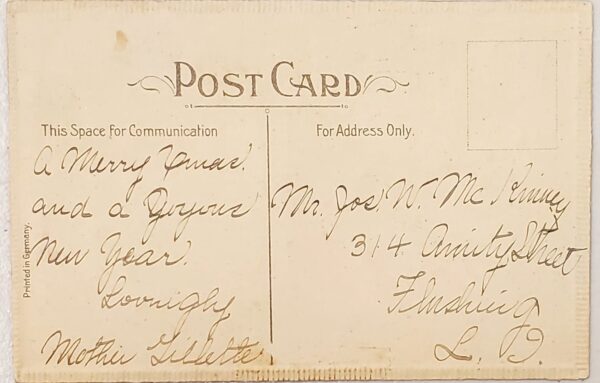 POST CARD
This Space for Communication
For Address Only.
A Merry Xmas.
and a Joyous
New Year.
Lovingly
Mother Gillette
Mr. Jos W. McKinney
314 Amity Street
Flushing
L. I.
Printed in Germany.